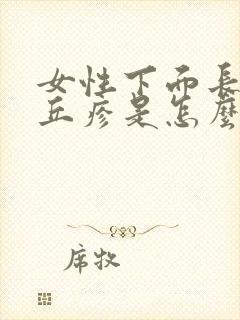 女性下面長
丘疹是怎麼
席牧